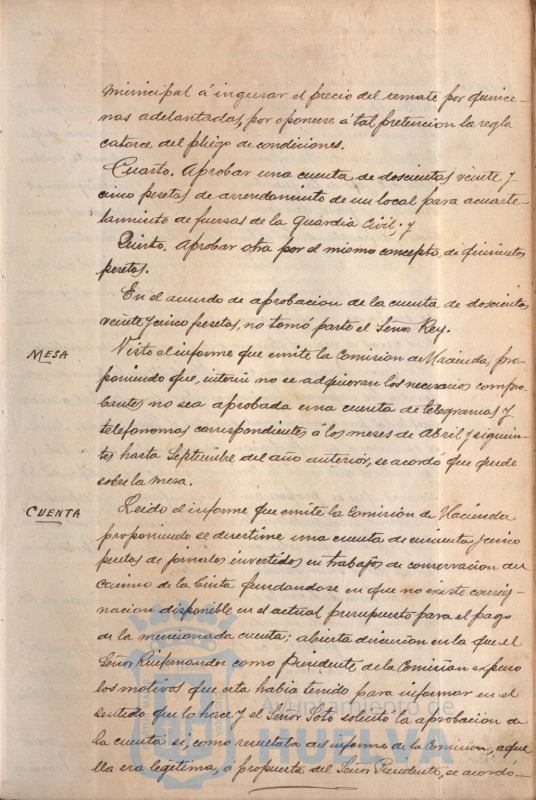 municipal á ingresar el precio del remate por quince-
nas adelantadas, por oponerse á tal pretencion la regla
catorce del pliego de condiciones.
Cuarto. Aprobar una cuenta de doscientas veinte y
cinco pesetas de arrendamiento de un local para acuarte-
lamiento de fuersas de la Guardia Civil; y
Quinto. Aprobar otra por el mismo concepto, de quinientas
pesetas.
En el acuerdo de aprobacion de la cuenta de doscientas
veinte y cinco pesetas, no tomó parte el Señor Rey.
MESA
Visto el informe que emite la Comision de Hacienda, pro-
poniendo que, interin no se adquieran los necesarios compro-
bantes no sea aprobada una cuenta de telegramas y
telefonemas correspondientes á los meses de Abril y siguien-
tes hasta Septiembre del año anterior, se acordó que quede
sobre la mesa.
CUENTA
Leido el informe que emite la Comisión de Hacienda
proponiendo se desestime una cuenta de cincuenta y cinco
pesetas de jornales invertidos en trabajos de conservacion del
camino de la Cinta fundandose en que no existe consig-
nacion disponible en el actual presupuesto para el pago
de la mencionada cuenta; abierta discusion en la que el
Señor como Presidente de la Comision expuso
los motivos que esta habia tenido para informar en el
sentido que lo hace y el Señor Soto solicitó la aprobacion de
la cuenta si, como resultaba del informe de la Comision, aque-
lla era legitima, á propuesta del Señor Presidente, se acordó
Ayuntamiento de
HUELVA